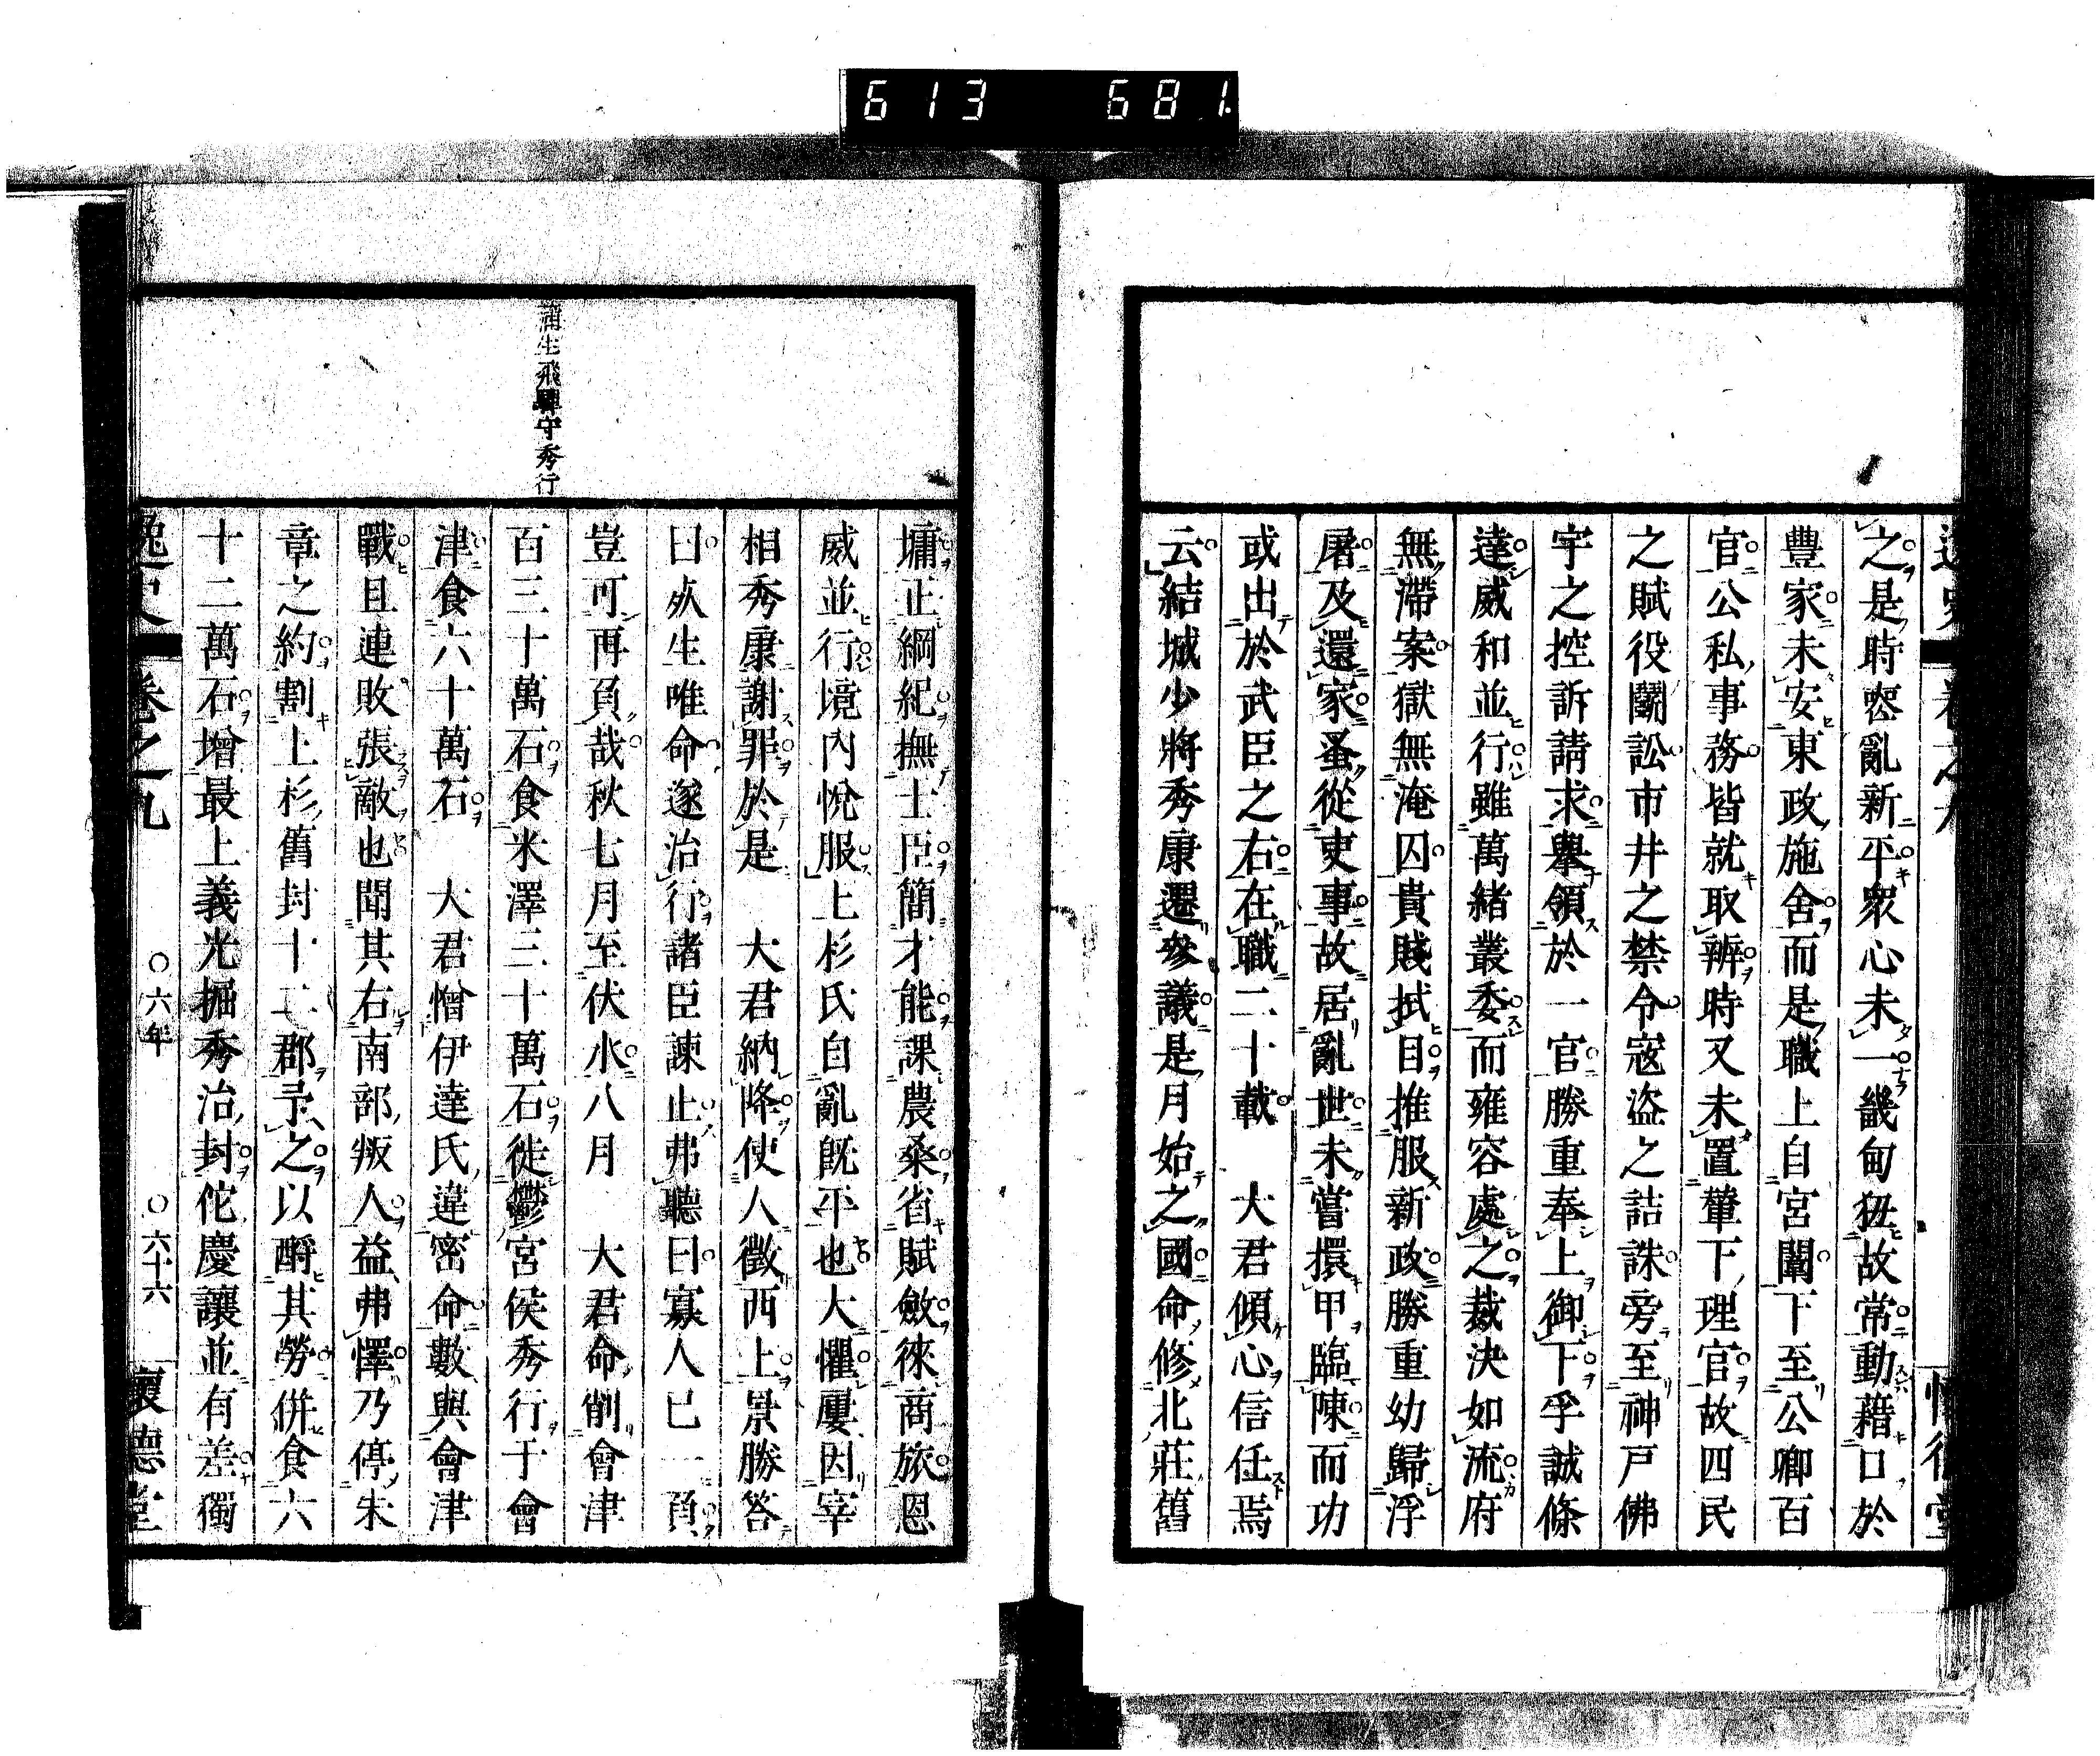 613 681
之是時喪亂新平衆心未一畿甸狃故常動藉口於
豐家未安東政施舍而是職上自宮闈下至公卿百
官公私事務皆就取辨時又未置輦下理官故四民
之賦役鬭訟市井之禁令寇盜之詰誅旁至神戸佛
宇之控訴請求舉領於一官勝重奉上御下孚誠條
達威和並行雖萬緒叢委而雍容處之裁決如流府
無滯案獄無淹囚貴賤拭目推服新政勝重幼歸浮
屠及還家蚤從吏事故居亂世未嘗擐甲臨陳而功
或出於武臣之右在職二十載　大君傾心信任焉
云結城少將秀康還參議是月始之國命修北莊舊
蒲生飛驒守秀行
墉正綱紀撫士臣簡才能課農桑省賦斂徠商旅恩
威並行境內悅服上杉氏自亂既平也大懼屢因宰
相秀康謝罪於是　大君納降使人徵西上景勝答
曰死生唯命遂治行諸臣諫止弗聽曰寡人已一負
豈可再負哉秋七月至伏水八月　大君命削會津
百三十萬石食米澤三十萬石徙鬱宮侯秀行于會
津食六十萬石　大君憎伊達氏違密命數與會津
戰且連敗張敵也聞其右南部叛人益弗懌乃停朱
章之約割上杉舊封十二郡予之以酹其勞併食六
十二萬石增最上義光掘秀治封佗慶讓並有差獨
逸史 卷之九 〇六年 〇六十六 懷德堂